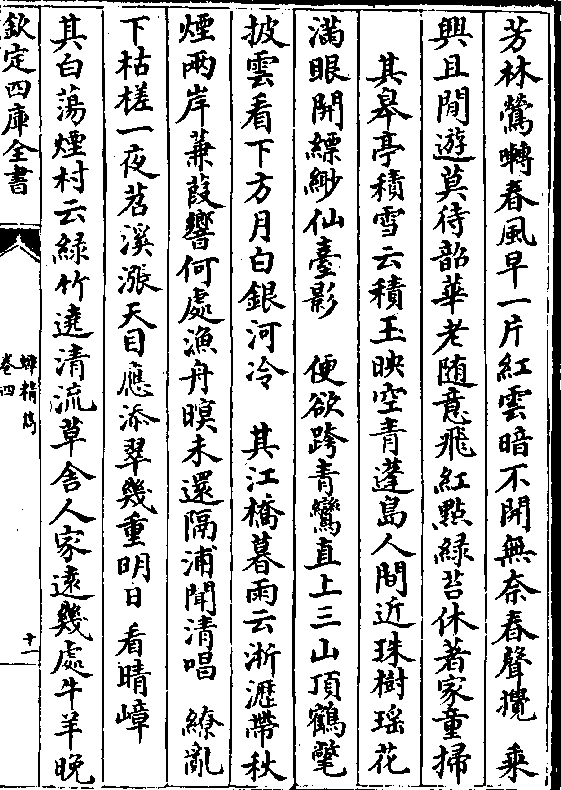 芳林鶯囀春風早一片紅雲暗不開無奈春聲攪　乘
興且閒遊莫待韶華老随意飛紅點緑苔休著家童掃
其皋亭積雪云積玉映空青蓬島人間近珠樹瑶花
滿眼開縹緲仙臺影　便欲跨青鸞直上三山頂鶴氅
披雲看下方月白銀河冷　其江橋暮雨云淅瀝帶秋
煙兩岸蒹葭響何處漁舟暝未還隔浦聞清唱　繚亂
下枯槎一夜苕溪漲天目應添翠幾重明日看晴嶂
其白蕩煙村云緑竹遶清流草舍人家遠幾處牛羊晚
欽定四庫全書
蟫精雋
卷四
十一